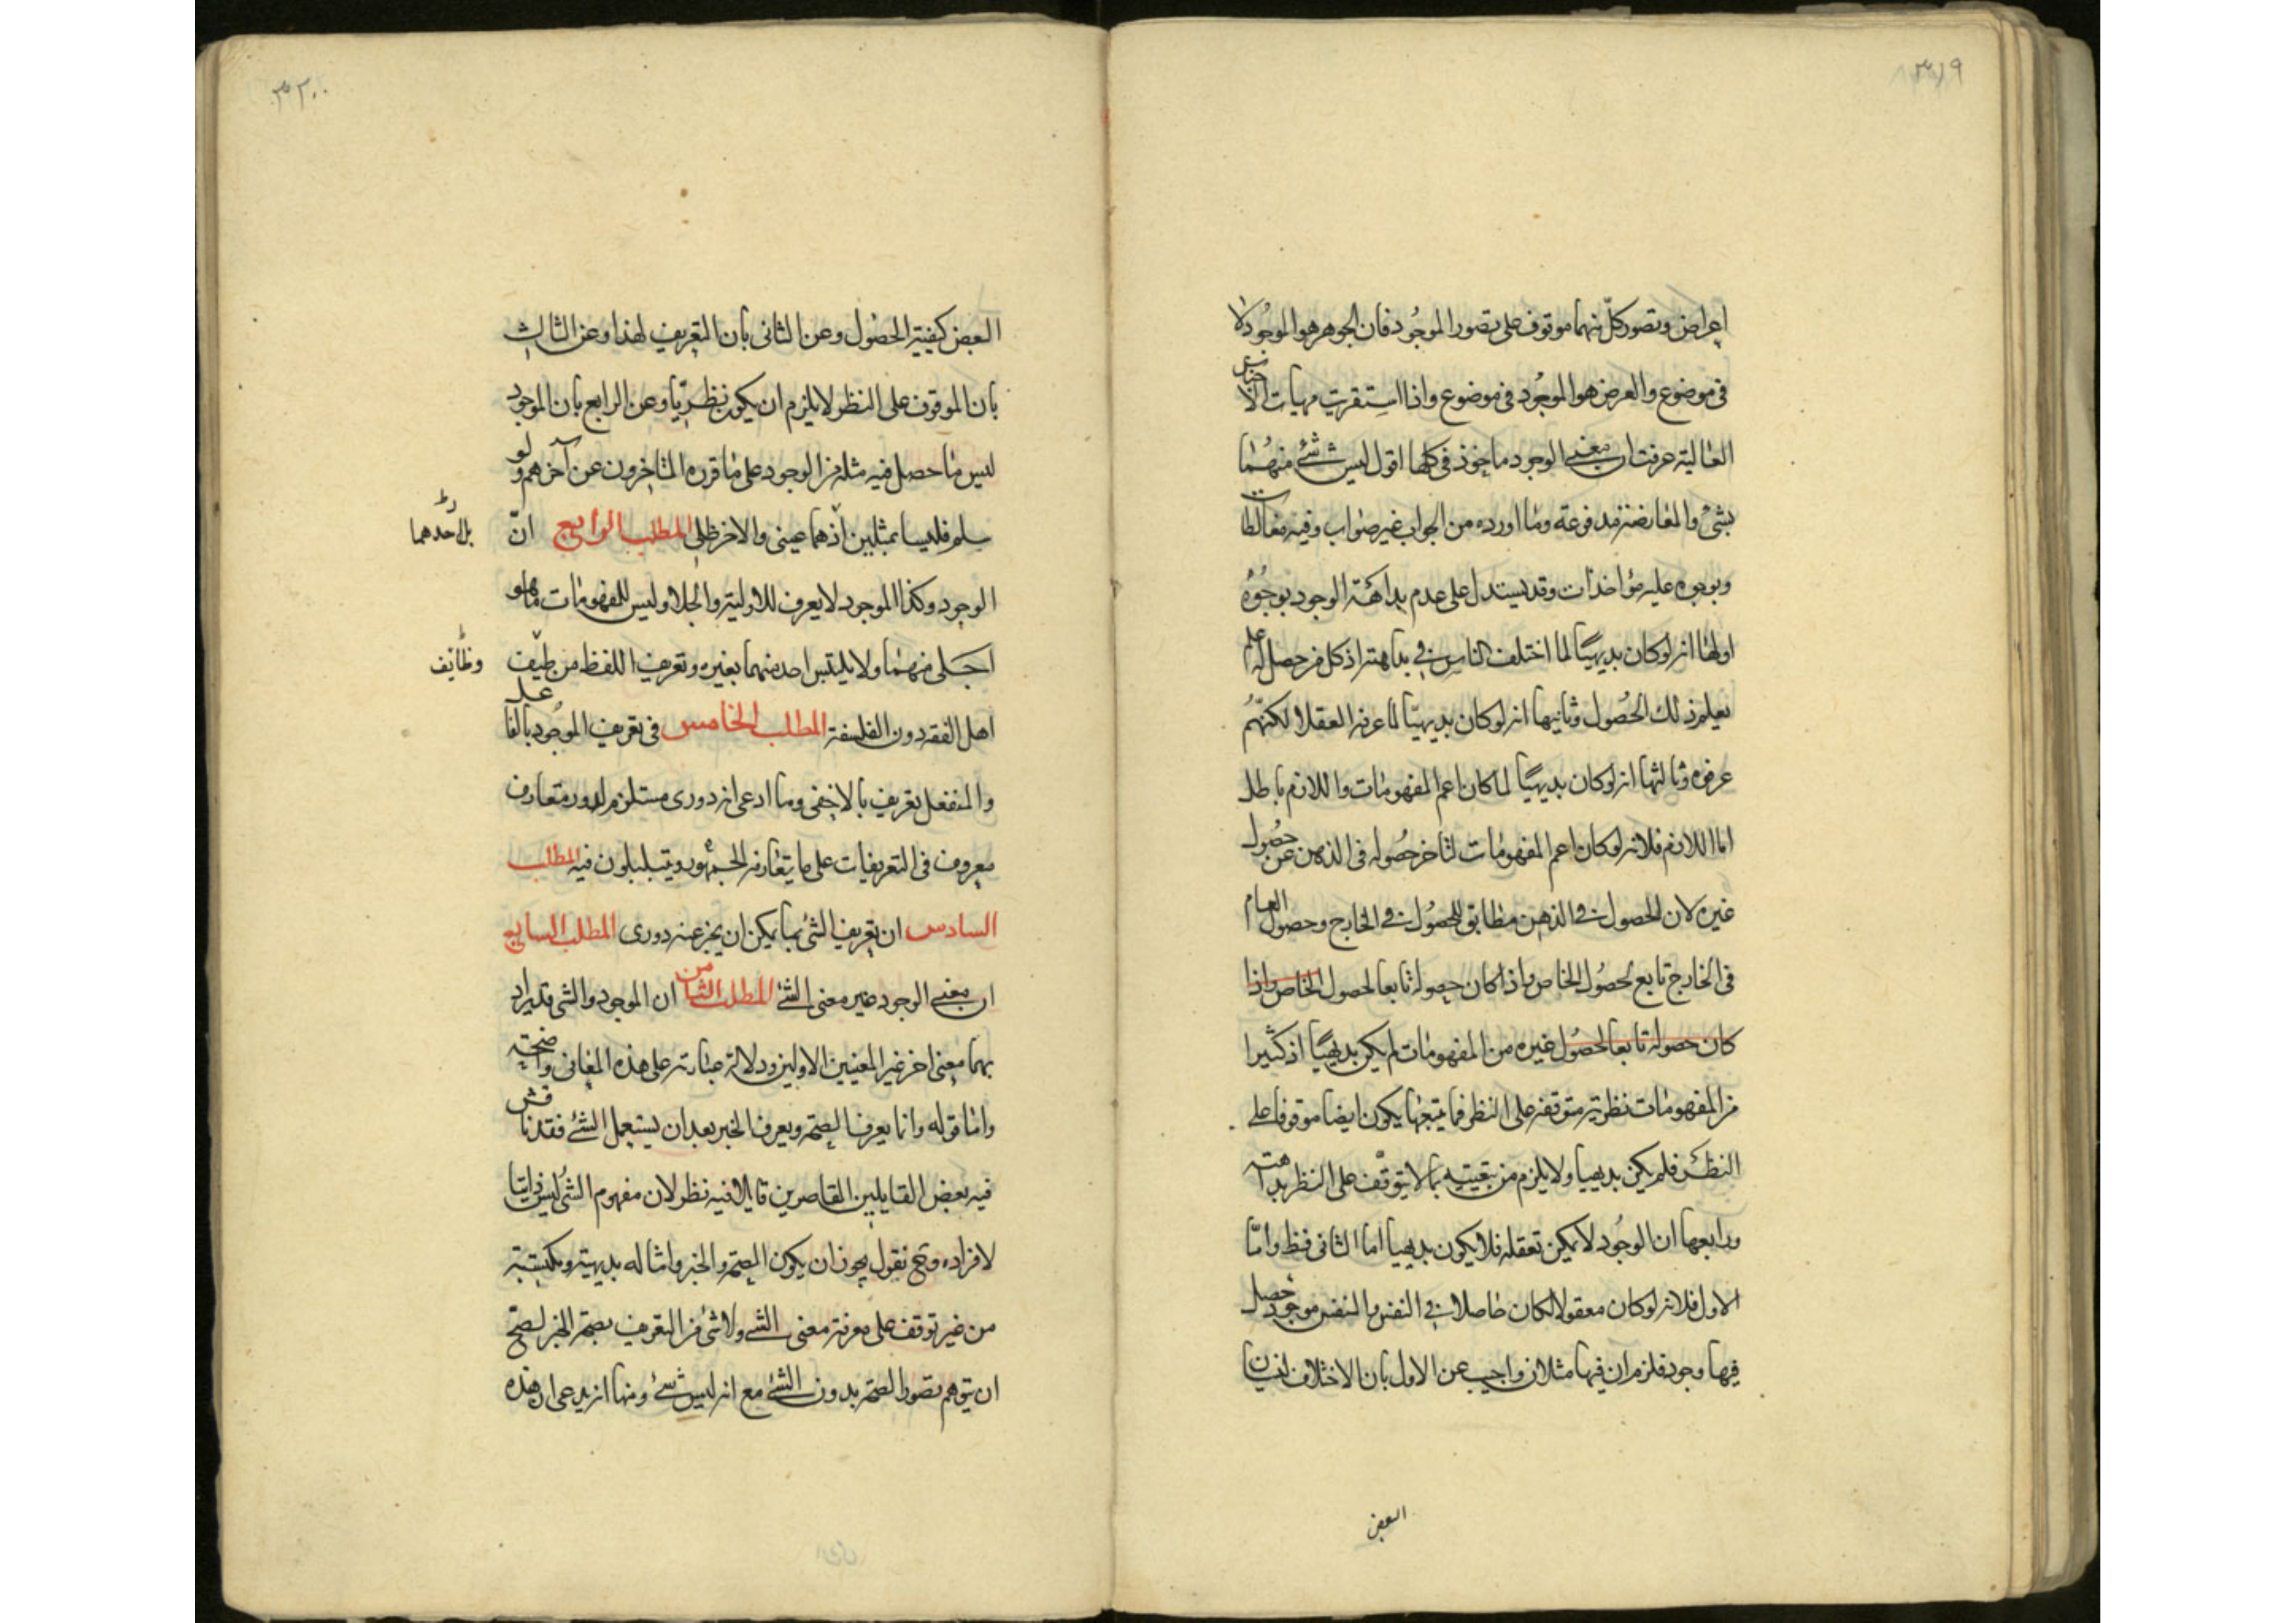 ٣١٩
اعراض وتصور كلّ منهما موقوف على تصور الموجُود فان الجوهر هو الموجُود لا
فى موضوع والعرض هو الموجُود فى موضوع واذا استقريت مهيات الاجناس
العالية عرفت ان معنى الوجود ماخوذ فى كلها اقول ليس شئ منهُما
بشئ والمعارضة مدفوعة وما اورده من الجواب غير صواب وفيه مغالطات
وبوجوه عليه مؤاخذات وقد يستدل على عدم بداهة الوجود بوجُوه
اولها انه لو كان بديهيًا لما اختلف الناس فى بداهته اذ كل من حصل له علم
يعلم ذلك الحصُول وثانيها انه لو كان بديهيّا لما عرفه العقلا لكنّهُم
عرفوه وثالثها انه لو كان بديهيًا لما كان اعم المفهومات واللازم باطل
اما اللازم فلانه لو كان اعم المفهومات لتاخر حصُوله فى الذهن عن حصُول
غيره لان الحصول فى الذهن مطابق للحصُول فى الخارج وحصول العام
فى الخارج تابع لحصُول الخاص واذا كان حصوله تابعا لحصول الخاص واذا
كان حصوله تابعا لحصُول غيره من المفهومات لم يكن بديهيًا اذ كثيرا
من المفهومات نظرية متوقفة على النظر فما يتبعها يكون ايضا موقوفا على
النظر فلم يكن بديهيا ولا يلزم من تبعيته بما لا يتوقّف على النظر بداهته
ورابعها ان الوجُود لا يمكن تعقله فلا يكون بديهيا اما الثانى فظ وامّا
الاول فلانه لو كان معقولا لكان حاصلا فى النفس والنفس موجود حصل
فيها وجود فلزم ان فيها مثلان واجيب عن الاول بان الاختلاف لنفيان
البعض
٣٢٠
البعض كيفية الحصُول وعن الثانى بان التعريف لهذا وعن الثالث
بان الموقوف على النظر لا يلزم ان يكون نظريّا وعن الرابع بان الموجود
ليس ما حصل فيه مثله من الوجود على ما قرره المتاخرون عن آخرهم ولو
سلم فليسا بمثلين اذ هما عينى والاخر ظلى المطلب الرابع انّ
بل احدهما
الوجود وكذا الموجود لا يعرف للاولية والجلا وليس للمفهومات ما هو
اجلى منهُما ولا يلتبس احد منهما بغيره وتعريف اللفظ من طيف
وظايف
اهل الفقه دون الفلسفة المطلب الخامس فى تعريف الموجُود بالفاعل
والمنفعل تعريف بالاخفى وما ادعى انه دورى مستلزم لدور متعارف
معروف فى التعريفات على ما يتعارفه الجمهُور ويتبلبلون فيه المطلب
السادس ان تعريف الشئ بما يمكن ان يخبر عنه دورى المطلب السابع
ان معنى الوجود غير معنى الشئ المطلب الثامن ان الموجود والشى قد يراد
بهما معنى اخر غير المعنيين الاولين ودلالة عباراته على هذه المعانى واضحة
وامّا قوله وانا يعرف الصحة ويعرف الخبر بعد ان يستعمل الشئ فقد ناقش
فيه بعض القايلين القاصرين قايلا فيه نظر لان مفهوم الشئ ليس ذاتيا
لافراده وح نقول يجوز ان يكون الصحة والخبر وامثاله بديهية ومكتسبة
من غير توقف على معرفة معنى الشئ ولا شئ من التعريف بصحة الخبر لصح
ان يتوهم تصور الصحة بدون الشئ مع انه ليس شئ ومنها انه يدعى ان هذه